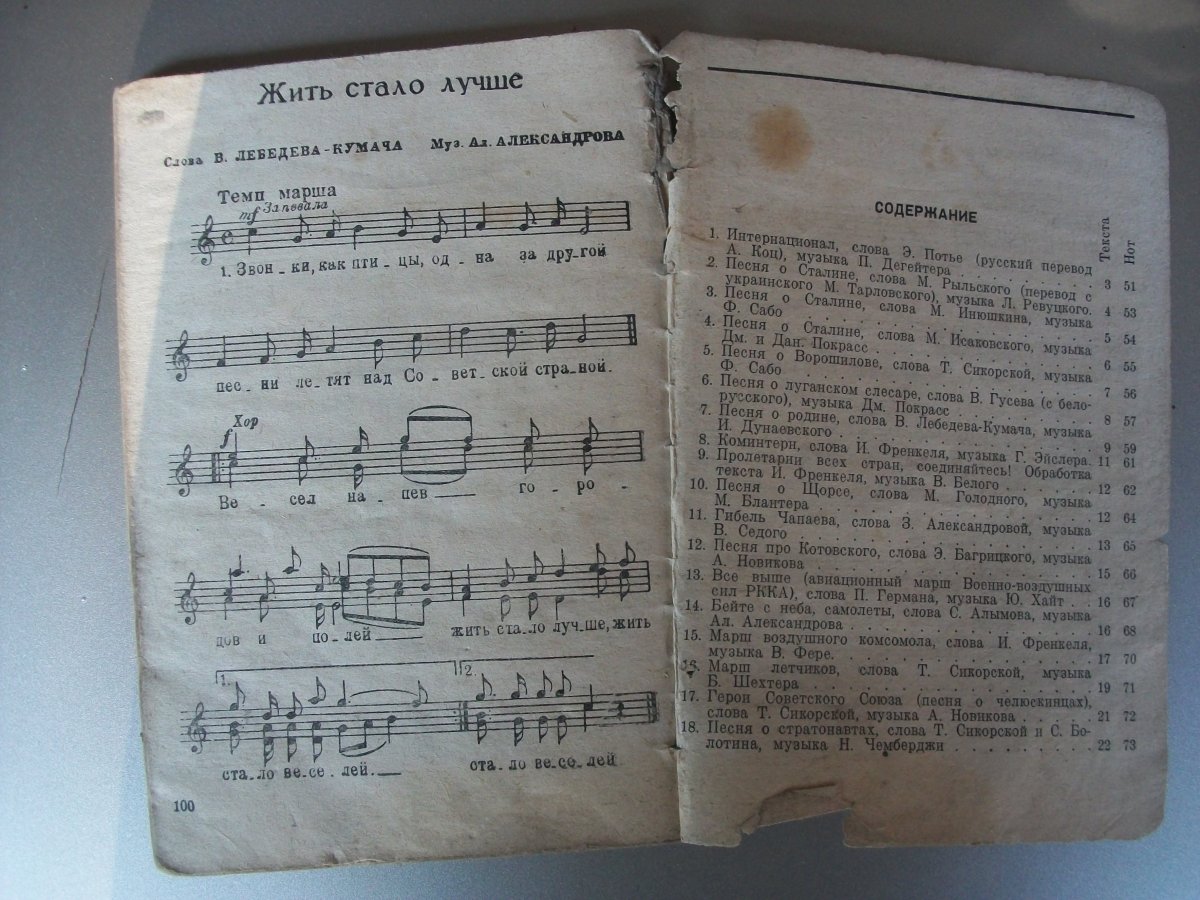 Жить стало лучше
Слова В. ЛЕБЕДЕВА-КУМАЧА Муз. Ал. АЛЕКСАНДРОВА
Темп марша
mf Запевала
1. Звон - ки, как пти - цы, од - на за дру-гой
пес - ни ле-тят над Со - вет-ской стра-ной.
Хор
f
Ве - сел на - пев го - ро -
дов и по-лей жить ста-ло луч-ше, жить
1. 2.
ста-ло ве-се-лей. ста-ло ве-се-лей
100
СОДЕРЖАНИЕ
Текста
Нот
1. Интернационал, слова Э. Потье (русский перевод
А. Коц), музыка П. Дегейтера . . . . . . . 3 51
2. Песня о Сталине, слова М. Рыльского (перевод с
украинского М. Тарловского), музыка Л. Ревуцкого. 4 53
3. Песня о Сталине, слова М. Инюшкина, музыка
Ф. Сабо . . . . . . . . . . . . 5 54
4. Песня о Сталине, слова М. Исаковского, музыка
Дм. и Дан. Покрасс . . . . . . . . . . 6 55
5. Песня о Ворошилове, слова Т. Сикорской, музыка
Ф. Сабо . . . . . . . . . . . . 7 56
6. Песня о луганском слесаре, слова В. Гусева (с бело-
русского), музыка Дм. Покрасс . . . . . . . 8 57
7. Песня о родине, слова В. Лебедева-Кумача, музыка
И. Дунаевского . . . . . . . . . . . 9 59
8. Коминтерн, слова И. Френкеля, музыка Г. Эйслера. 11 61
9. Пролетарии всех стран, соединяйтесь! Обработка
текста И. Френкеля, музыка В. Белого . . . . . . 12 62
10. Песня о Щорсе, слова М. Голодного, музыка
М. Блантера . . . . . . . . . . . . 12 64
11. Гибель Чапаева, слова З. Александровой, музыка
В. Седого . . . . . . . . . . . . 13 65
12. Песня про Котовского, слова Э. Багрицкого, музыка
А. Новикова . . . . . . . . . . . . 15 66
13. Все выше (авиационный марш Военно-воздушных
сил РККА), слова П. Германа, музыка Ю. Хайт . . 16 67
14. Бейте с неба, самолеты, слова С. Алымова, музыка
Ал. Александрова . . . . . . . . . . . 16 68
15. Марш воздушного комсомола, слова И. Френкеля,
музыка В. Фере. . . . . . . . . . . . 17 70
16. Марш летчиков, слова Т. Сикорской, музыка
Б. Шехтера . . . . . . . . . . . . 19 71
17. Герои Советского Союза (песня о челюскинцах),
слова Т. Сикорской, музыка А. Новикова . . . . . 21 72
18. Песня о стратонавтах, слова Т. Сикорской и С. Бо-
лотина, музыка Н. Чемберджи . . . . . . . . 22 73